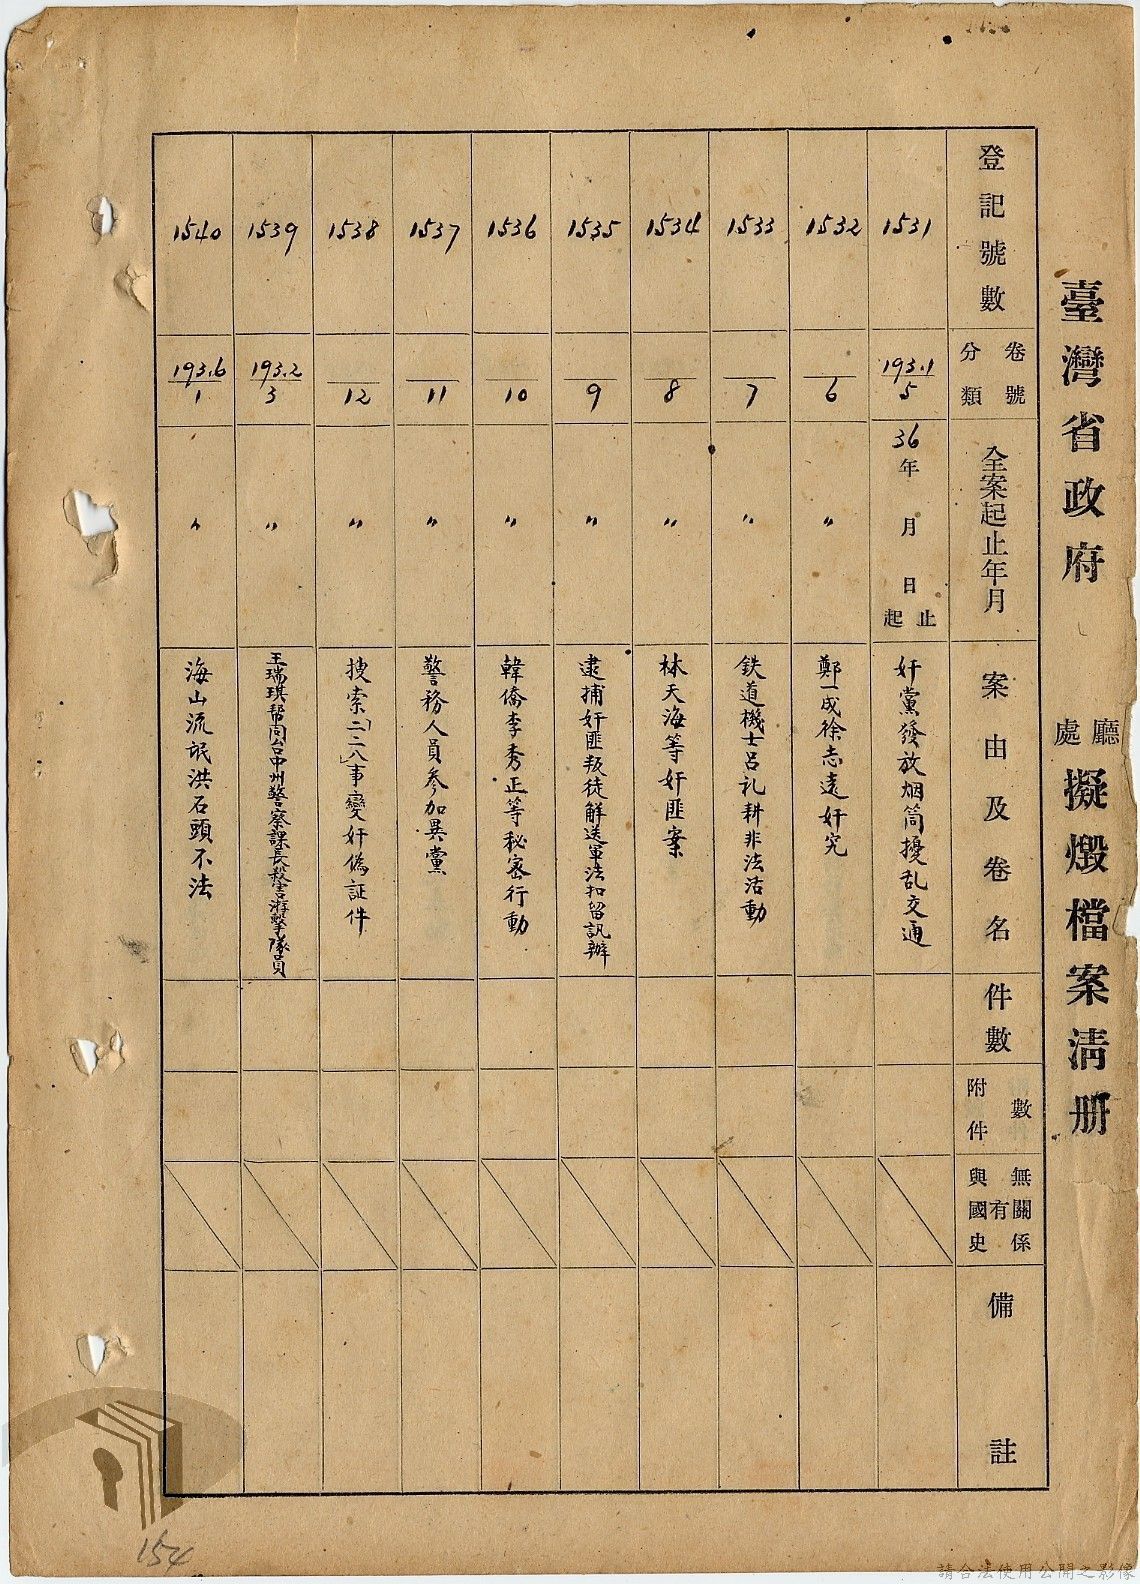 臺灣省政府 廳處擬燬檔案清册
登記號數
卷號分類
全案起止年月
案由及卷名
件數
附件數
與國史有無關係
備註
1531 193.1/5 36年月日起止 奸黨發放烟筒擾乱交通
1532 6 〃 鄭一成徐志遠奸究
1533 7 〃 鉄道機士呂礼耕非法活動
1534 8 〃 林天海等奸匪案
1535 9 〃 逮捕奸匪叛徒解送軍法扣留訊辦
1536 10 〃 韓僑李秀正等秘密行動
1537 11 〃 警務人員参加異黨
1538 12 〃 搜索「二二八」事變奸偽証件
1539 193.2/3 〃 王瑞琪帮同台中州警察課長殺害游擊隊員
1540 193.6/1 〃 海山流氓洪石頭不法
154
請合法使用公開之影像